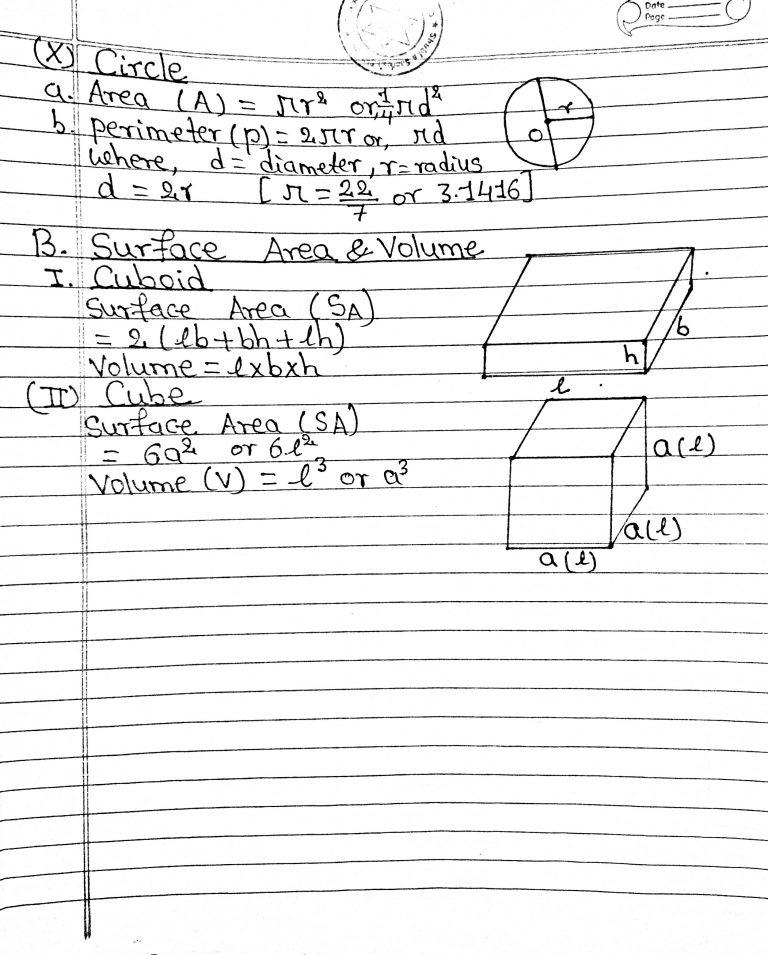 Date
Page
(X) Circle
a. Area (A) = πr² or, 1/4 πd²
b. perimeter (p) = 2πr or, πd
where, d = diameter, r = radius
d = 2r [π = 22/7 or 3.1416]
r
O
B. Surface Area & Volume
I. Cuboid
Surface Area (SA)
= 2 (lb + bh + lh)
Volume = l x b x h
h
b
l
(II) Cube
Surface Area (SA)
= 6a² or 6l²
Volume (V) = l³ or a³
a(l)
a(l)
a(l)